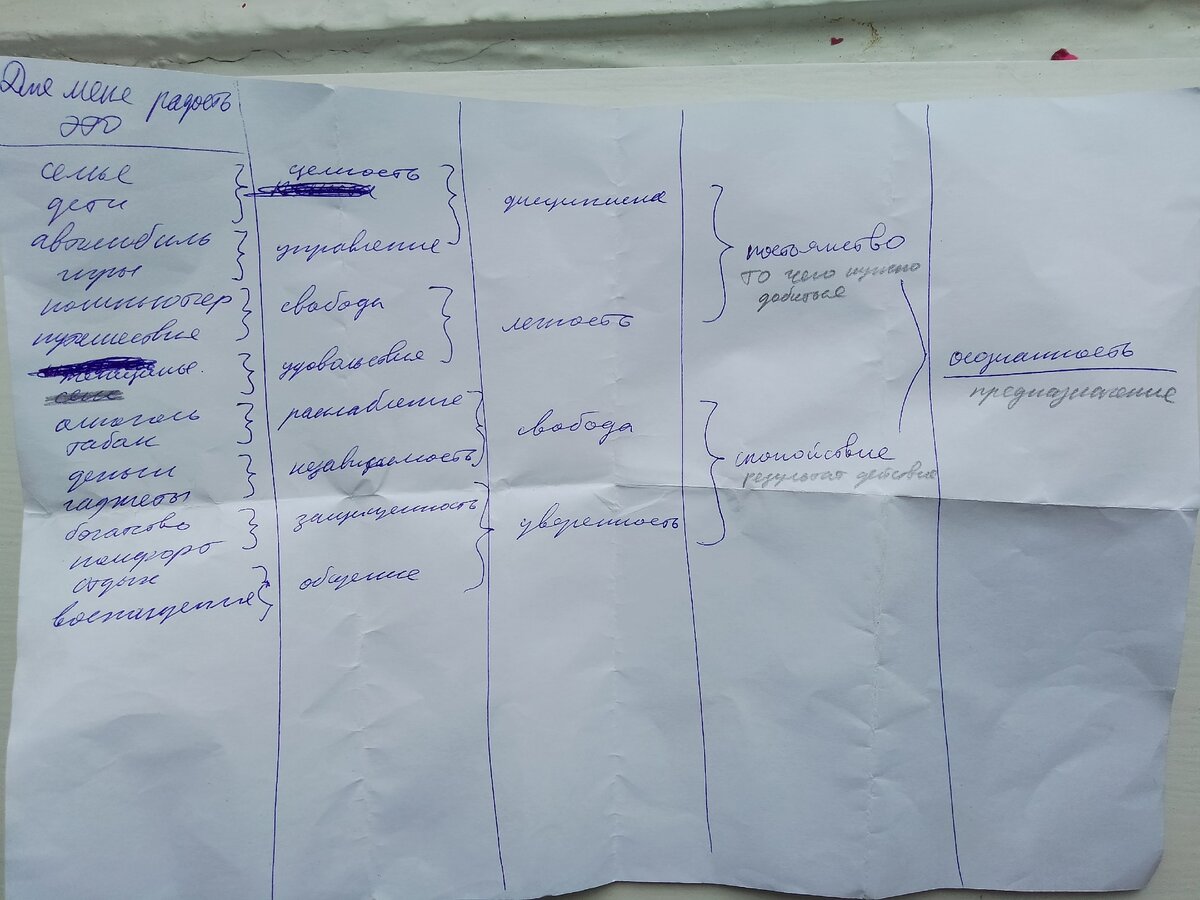 Для меня радость
это
семья
дети
автомобиль
игры
компьютер
путешествия
женщины.
секс
алкоголь
табак
деньги
гаджеты
богатство
комфорт
отдых
целность
управление
свобода
удовольствие
расслабление
независимость
защищенность
общение
дисциплина
легкость
свобода
уверенность
постоянство
то чего нужно
добиться
спокойствие
результат действия
осознанность
предназначение